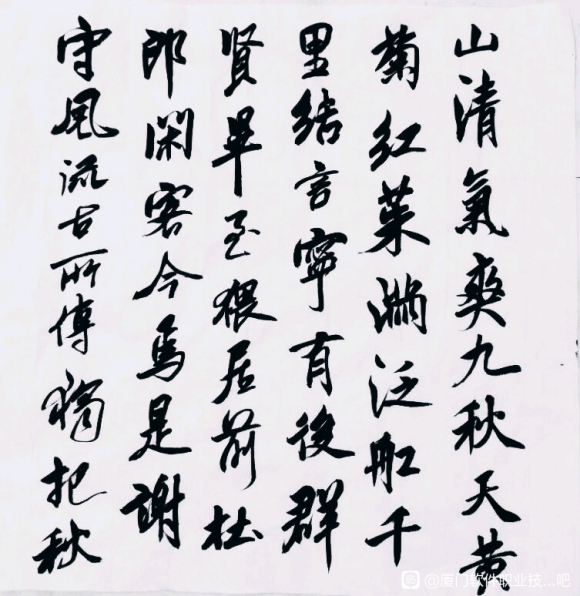 山清氣爽九秋天黃
菊紅茱滿泛舡千
里結言寧有後群
賢畢至猥居前杜
郎閑客今焉是謝
守風流古所傳獨把秋
@厦门软件职业技...吧